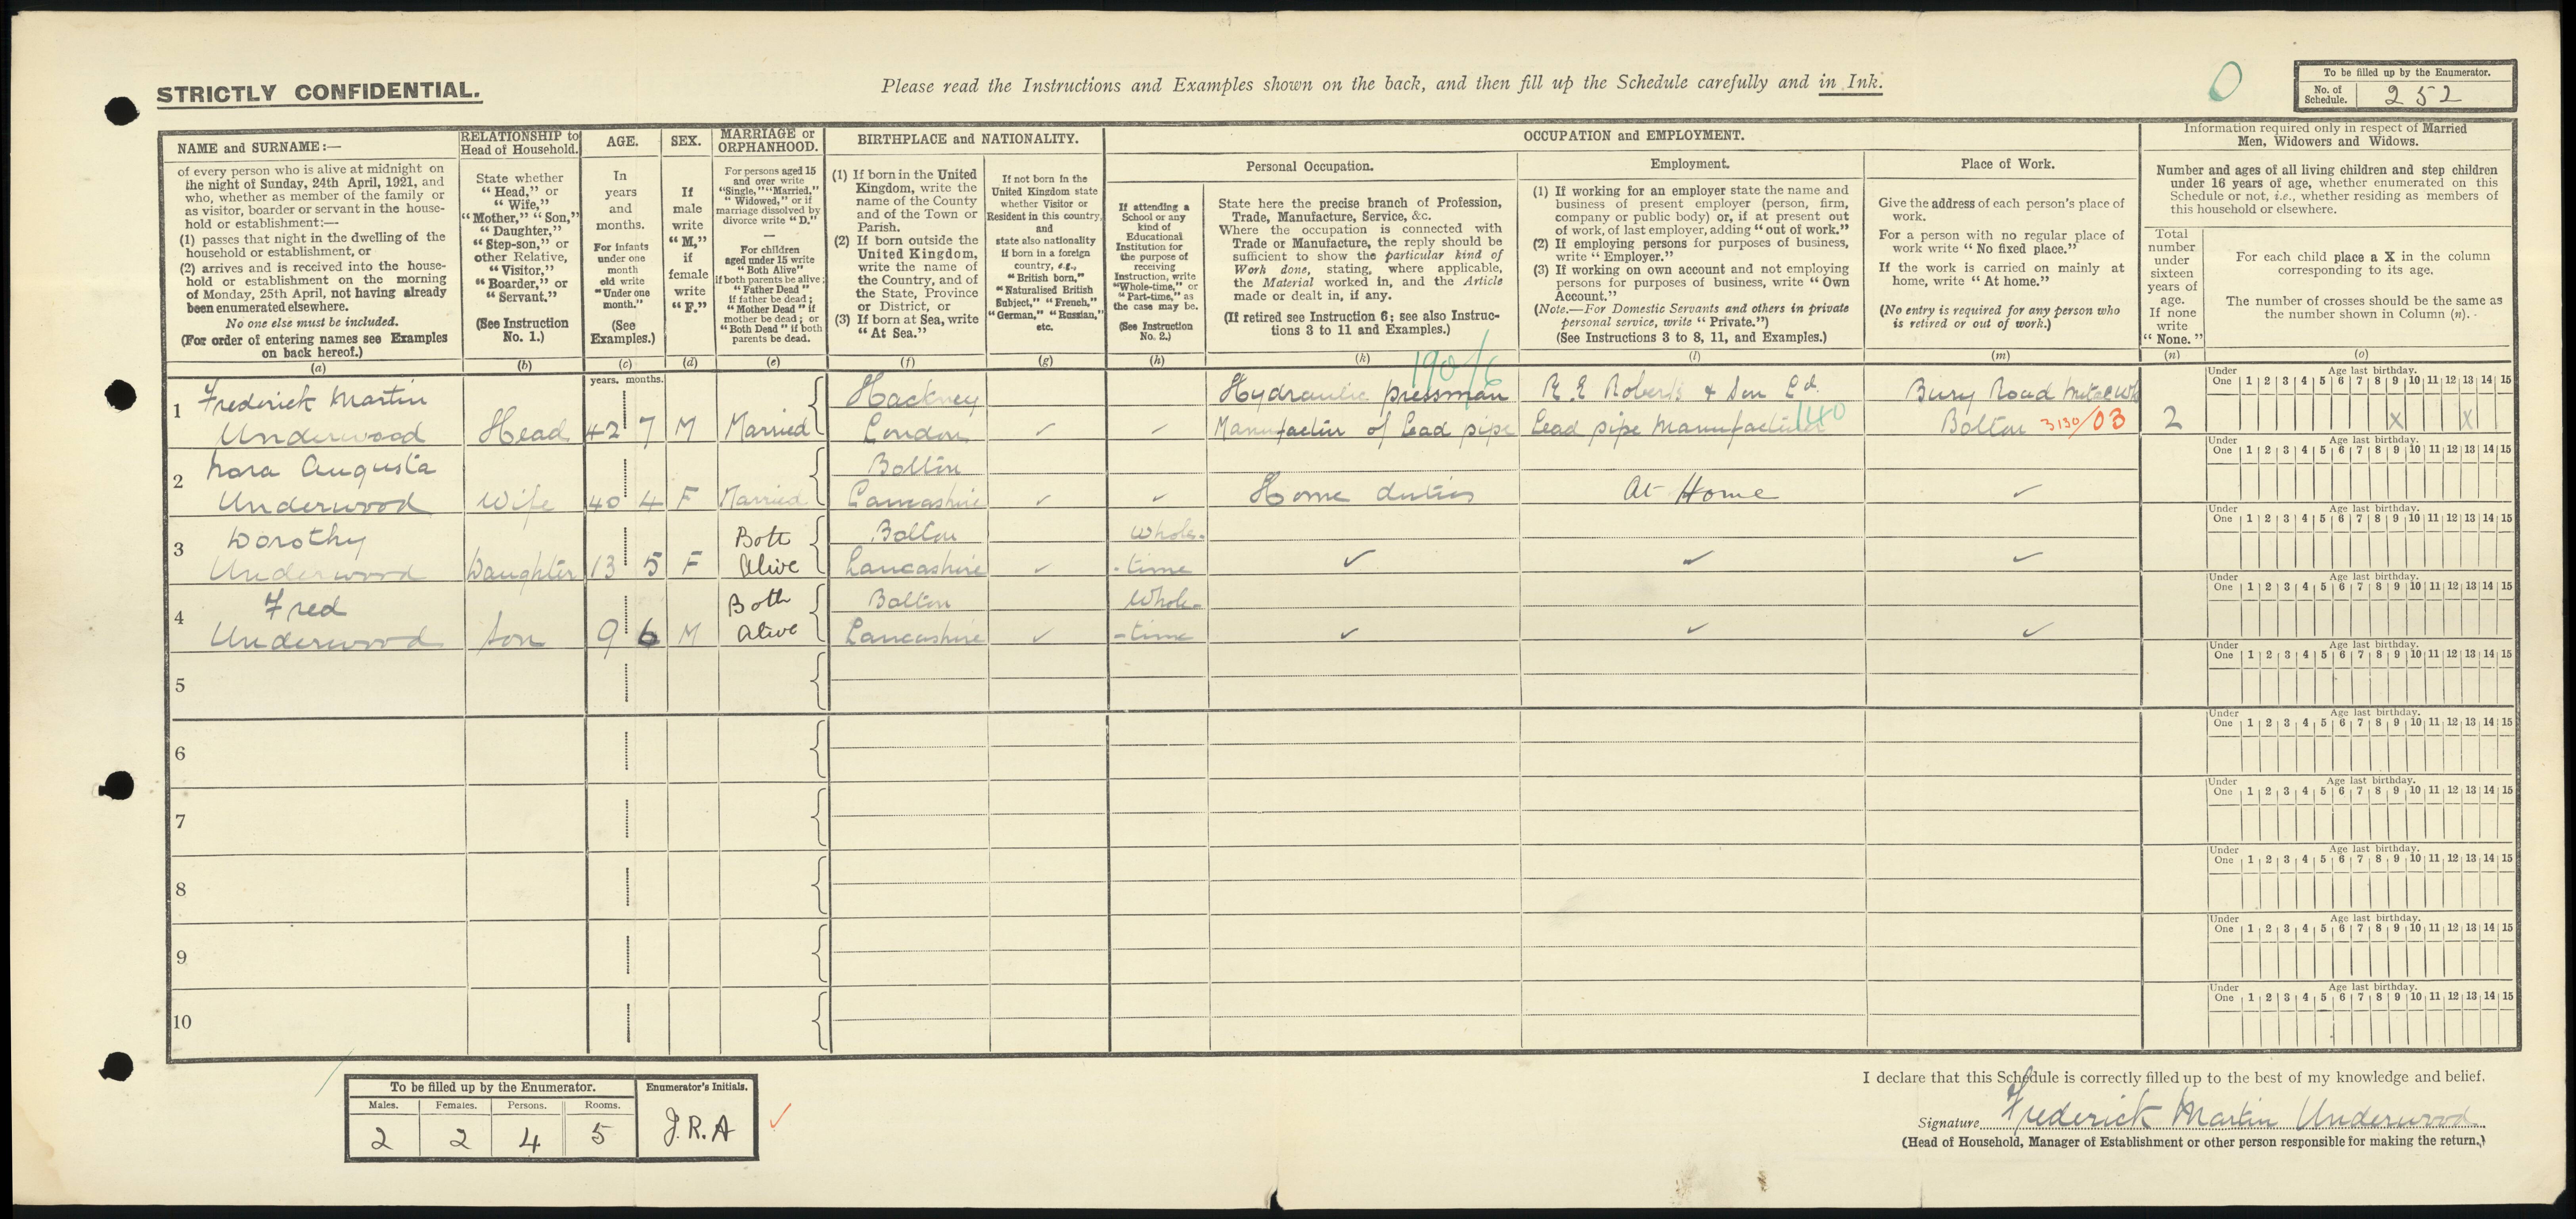 STRICTLY CONFIDENTIAL.
Please read the Instructions and Examples shown on the back, and then fill up the Schedule carefully and in Ink.
0
To be filled up by the Enumerator.
No. of Schedule. 252
NAME and SURNAME:—
of every person who is alive at midnight on
the night of Sunday, 24th April, 1921, and
who, whether as member of the family or
as visitor, boarder or servant in the house-
hold or establishment:—
(1) passes that night in the dwelling of the
household or establishment, or
(2) arrives and is received into the house-
hold or establishment on the morning
of Monday, 25th April, not having already
been enumerated elsewhere.
No one else must be included.
(For order of entering names see Examples
on back hereof.)
(a)
RELATIONSHIP to
Head of Household.
State whether
"Head," or
"Wife,"
"Mother," "Son,"
"Daughter,"
"Step-son," or
other Relative,
"Visitor,"
"Boarder," or
"Servant."
(See Instruction
No. 1.)
(b)
AGE.
In
years
and
months.
For infants
under one
month
old write
"Under one
month."
(See
Examples.)
(c)
SEX.
If
male
write
"M,"
if
female
write
"F."
(d)
MARRIAGE or
ORPHANHOOD.
For persons aged 15
and over write
"Single," "Married,"
"Widowed," or if
marriage dissolved by
divorce write "D."
—
For children
aged under 15 write
"Both Alive"
if both parents be alive;
"Father Dead"
if father be dead;
"Mother Dead" if
mother be dead; or
"Both Dead" if both
parents be dead.
(e)
BIRTHPLACE and NATIONALITY.
(1) If born in the United
Kingdom, write the
name of the County
and of the Town or
Parish.
(2) If born outside the
United Kingdom,
write the name of
the Country, and of
the State, Province
or District, or
(3) If born at Sea, write
"At Sea."
(f)
If not born in the
United Kingdom state
whether Visitor or
Resident in this country,
and
state also nationality
if born in a foreign
country, e.g.,
"British born,"
"Naturalised British
Subject," "French,"
"German," "Russian,"
etc.
(g)
OCCUPATION and EMPLOYMENT.
If attending a
School or any
kind of
Educational
Institution for
the purpose of
receiving
Instruction, write
"Whole-time," or
"Part-time," as
the case may be.
(See Instruction
No. 2.)
(h)
Personal Occupation.
State here the precise branch of Profession,
Trade, Manufacture, Service, &c.
Where the occupation is connected with
Trade or Manufacture, the reply should be
sufficient to show the particular kind of
Work done, stating, where applicable,
the Material worked in, and the Article
made or dealt in, if any.
(If retired see Instruction 6; see also Instruc-
tions 3 to 11 and Examples.)
(k)
Employment.
(1) If working for an employer state the name and
business of present employer (person, firm,
company or public body) or, if at present out
of work, of last employer, adding "out of work."
(2) If employing persons for purposes of business,
write "Employer."
(3) If working on own account and not employing
persons for purposes of business, write "Own
Account."
(Note.—For Domestic Servants and others in private
personal service, write "Private.")
(See Instructions 3 to 8, 11, and Examples.)
(l)
Place of Work.
Give the address of each person's place of
work.
For a person with no regular place of
work write "No fixed place."
If the work is carried on mainly at
home, write "At home."
(No entry is required for any person who
is retired or out of work.)
(m)
Information required only in respect of Married
Men, Widowers and Widows.
Number and ages of all living children and step children
under 16 years of age, whether enumerated on this
Schedule or not, i.e., whether residing as members of
this household or elsewhere.
Total
number
under
sixteen
years of
age.
If none
write
"None."
(n)
For each child place a X in the column
corresponding to its age.
The number of crosses should be the same as
the number shown in Column (n).
(o)
years. months.
190/6
Under One Age last birthday. 1 2 3 4 5 6 7 8 9 10 11 12 13 14 15
1 Frederick Martin Hackney Hydraulic pressman R. E Roberts & Son Ld. Bury Road Metal Wks
Underwood Head 42 7 M Married London ✓ ✓ Manufactur of Lead pipe Lead pipe Manufacturer 140 Bolton 3130/03 2 X X
Under One Age last birthday. 1 2 3 4 5 6 7 8 9 10 11 12 13 14 15
2 Nora Augusta Bolton
Underwood Wife 40 4 F Married Lancashire ✓ ✓ Home duties At Home ✓
Under One Age last birthday. 1 2 3 4 5 6 7 8 9 10 11 12 13 14 15
3 Dorothy Both Bolton Whole-
Underwood Daughter 13 5 F Alive Lancashire ✓ -time ✓ ✓ ✓
Under One Age last birthday. 1 2 3 4 5 6 7 8 9 10 11 12 13 14 15
4 Fred Both Bolton Whole-
Underwood Son 9 6 M Alive Lancashire ✓ -time ✓ ✓ ✓
Under One Age last birthday. 1 2 3 4 5 6 7 8 9 10 11 12 13 14 15
5
Under One Age last birthday. 1 2 3 4 5 6 7 8 9 10 11 12 13 14 15
6
Under One Age last birthday. 1 2 3 4 5 6 7 8 9 10 11 12 13 14 15
7
Under One Age last birthday. 1 2 3 4 5 6 7 8 9 10 11 12 13 14 15
8
Under One Age last birthday. 1 2 3 4 5 6 7 8 9 10 11 12 13 14 15
9
Under One Age last birthday. 1 2 3 4 5 6 7 8 9 10 11 12 13 14 15
10
To be filled up by the Enumerator. Enumerator's Initials.
Males. Females. Persons. Rooms.
2 2 4 5 J.R.A ✓
I declare that this Schedule is correctly filled up to the best of my knowledge and belief.
Signature Frederick Martin Underwood
(Head of Household, Manager of Establishment or other person responsible for making the return.)